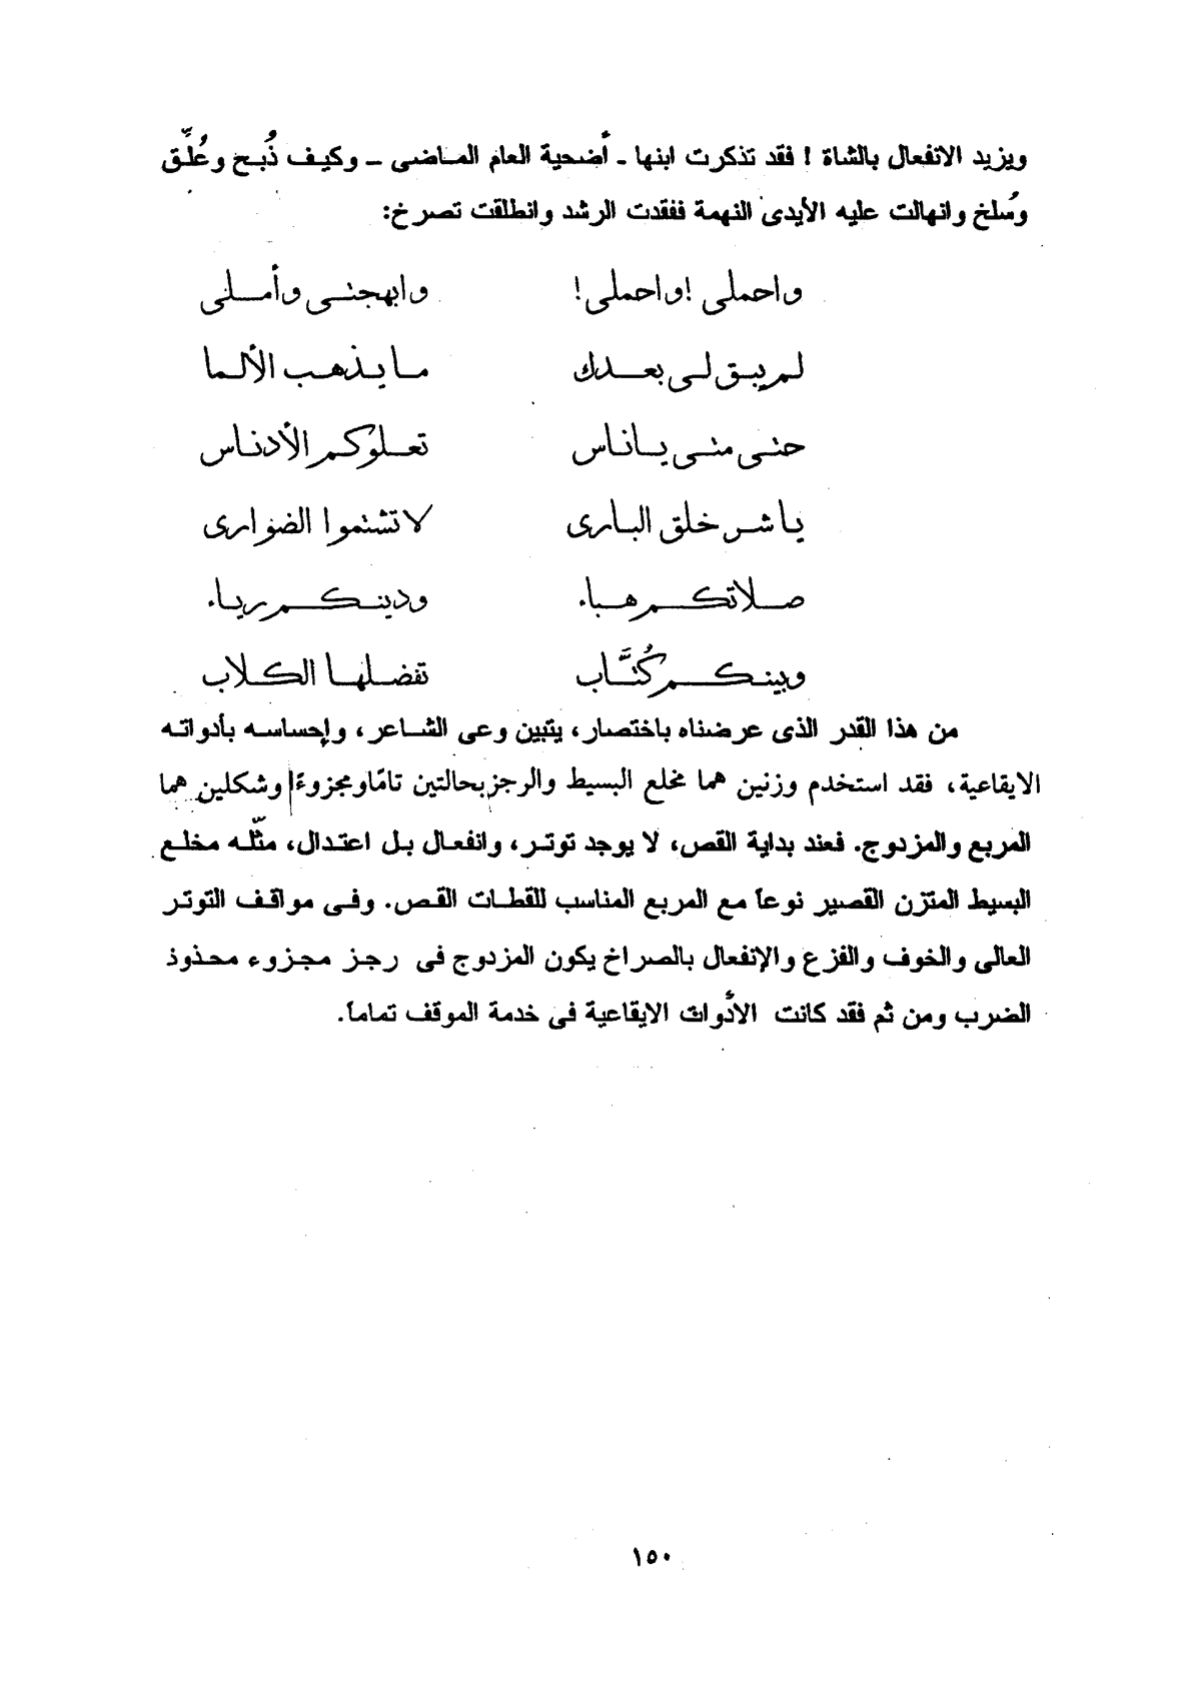 ويزيد الانفعال بالشاة ! فقد تذكرت ابنها ـ أضحية العام الماضى ـ وكيف ذُبح وعُلِّق
وسُلخ وانهالت عليه الأيدى النهمة ففقدت الرشد وانطلقت تصرخ:
واحملى !واحملى! وابهجتى وأملى
لم يبق لى بعدك ما يذهب الألما
حتى متى ياناس تعلوكم الأدناس
ياشر خلق البارى لا تشتموا الضوارى
صلاتكم هباء ودينكم رياء
وبينكم كُتَّاب تفضلها الكلاب
من هذا القدر الذى عرضناه باختصار، يتبين وعى الشاعر، وإحساسه بأدواته
الايقاعية، فقد استخدم وزنين هما مخلع البسيط والرجز بحالتين تامًا ومجزوءًا وشكلين هما
المربع والمزدوج. فعند بداية القص، لا يوجد توتر، وانفعال بل اعتدال، مثّله مخلع
البسيط المتزن القصير نوعاً مع المربع المناسب للقطات القص. وفى مواقف التوتر
العالى والخوف والفزع والإنفعال بالصراخ يكون المزدوج فى رجز مجزوء محذوذ
الضرب ومن ثم فقد كانت الأدوات الايقاعية فى خدمة الموقف تماماً.
١٥٠